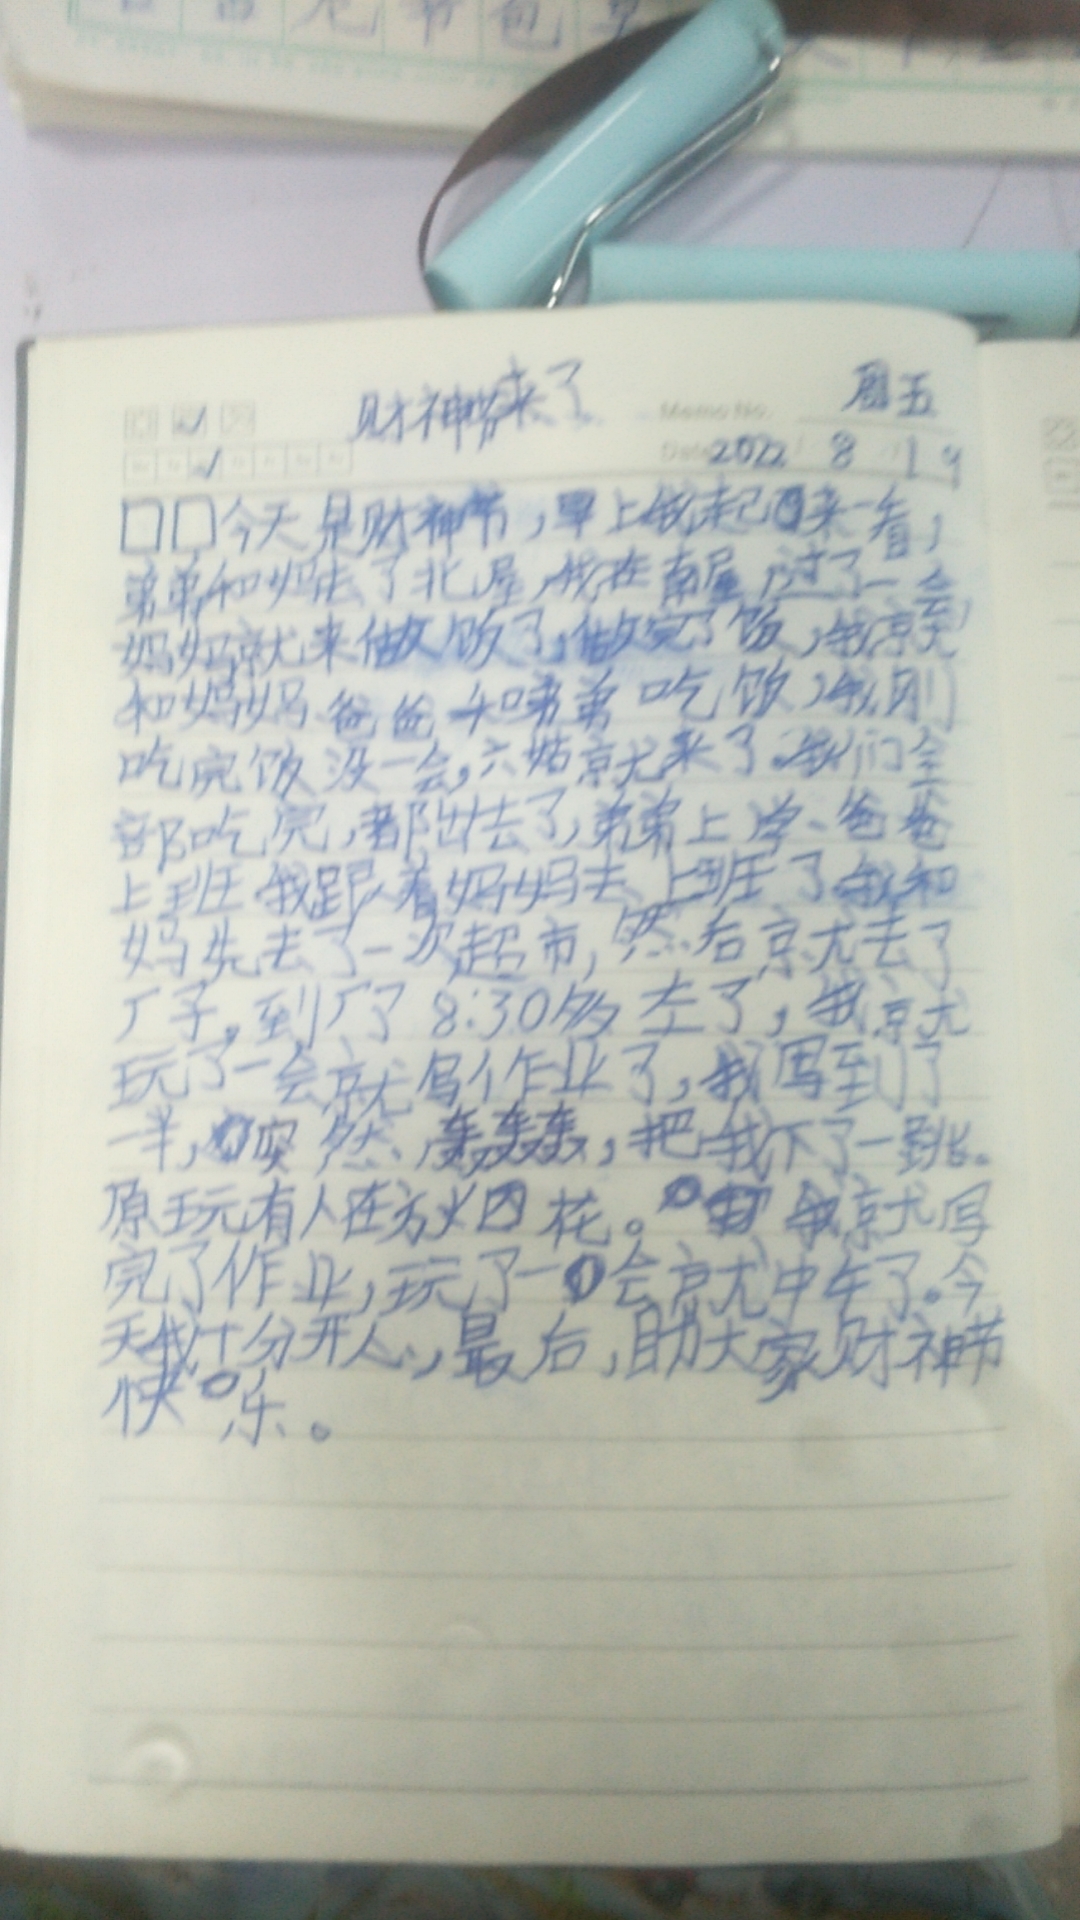 财神来了 周五
Memo No.
Date 2022 8 19
今天是财神节,早上我起来一看,
弟弟和妈去了北屋,我在南屋,过了一会,
妈妈就来做饭了,做完了饭,我就
和妈妈爸爸和弟弟吃饭,我刚
吃完饭没一会,六姑就来了.我们全
部吃完,都出去了,弟弟上学、爸爸
上班我跟着妈妈去上班了我和
妈先去了一次超市,然后就去了
厂子,到厂了8:30多左了,我就
玩了一会就写作业了,我写到了
一半,突然,轰轰轰,把我下了一跳.
原玩有人在方火囚花。我就写
完了作业,玩了一会就中午了.今
天我十分开心,最后,助大家财神节
快乐。